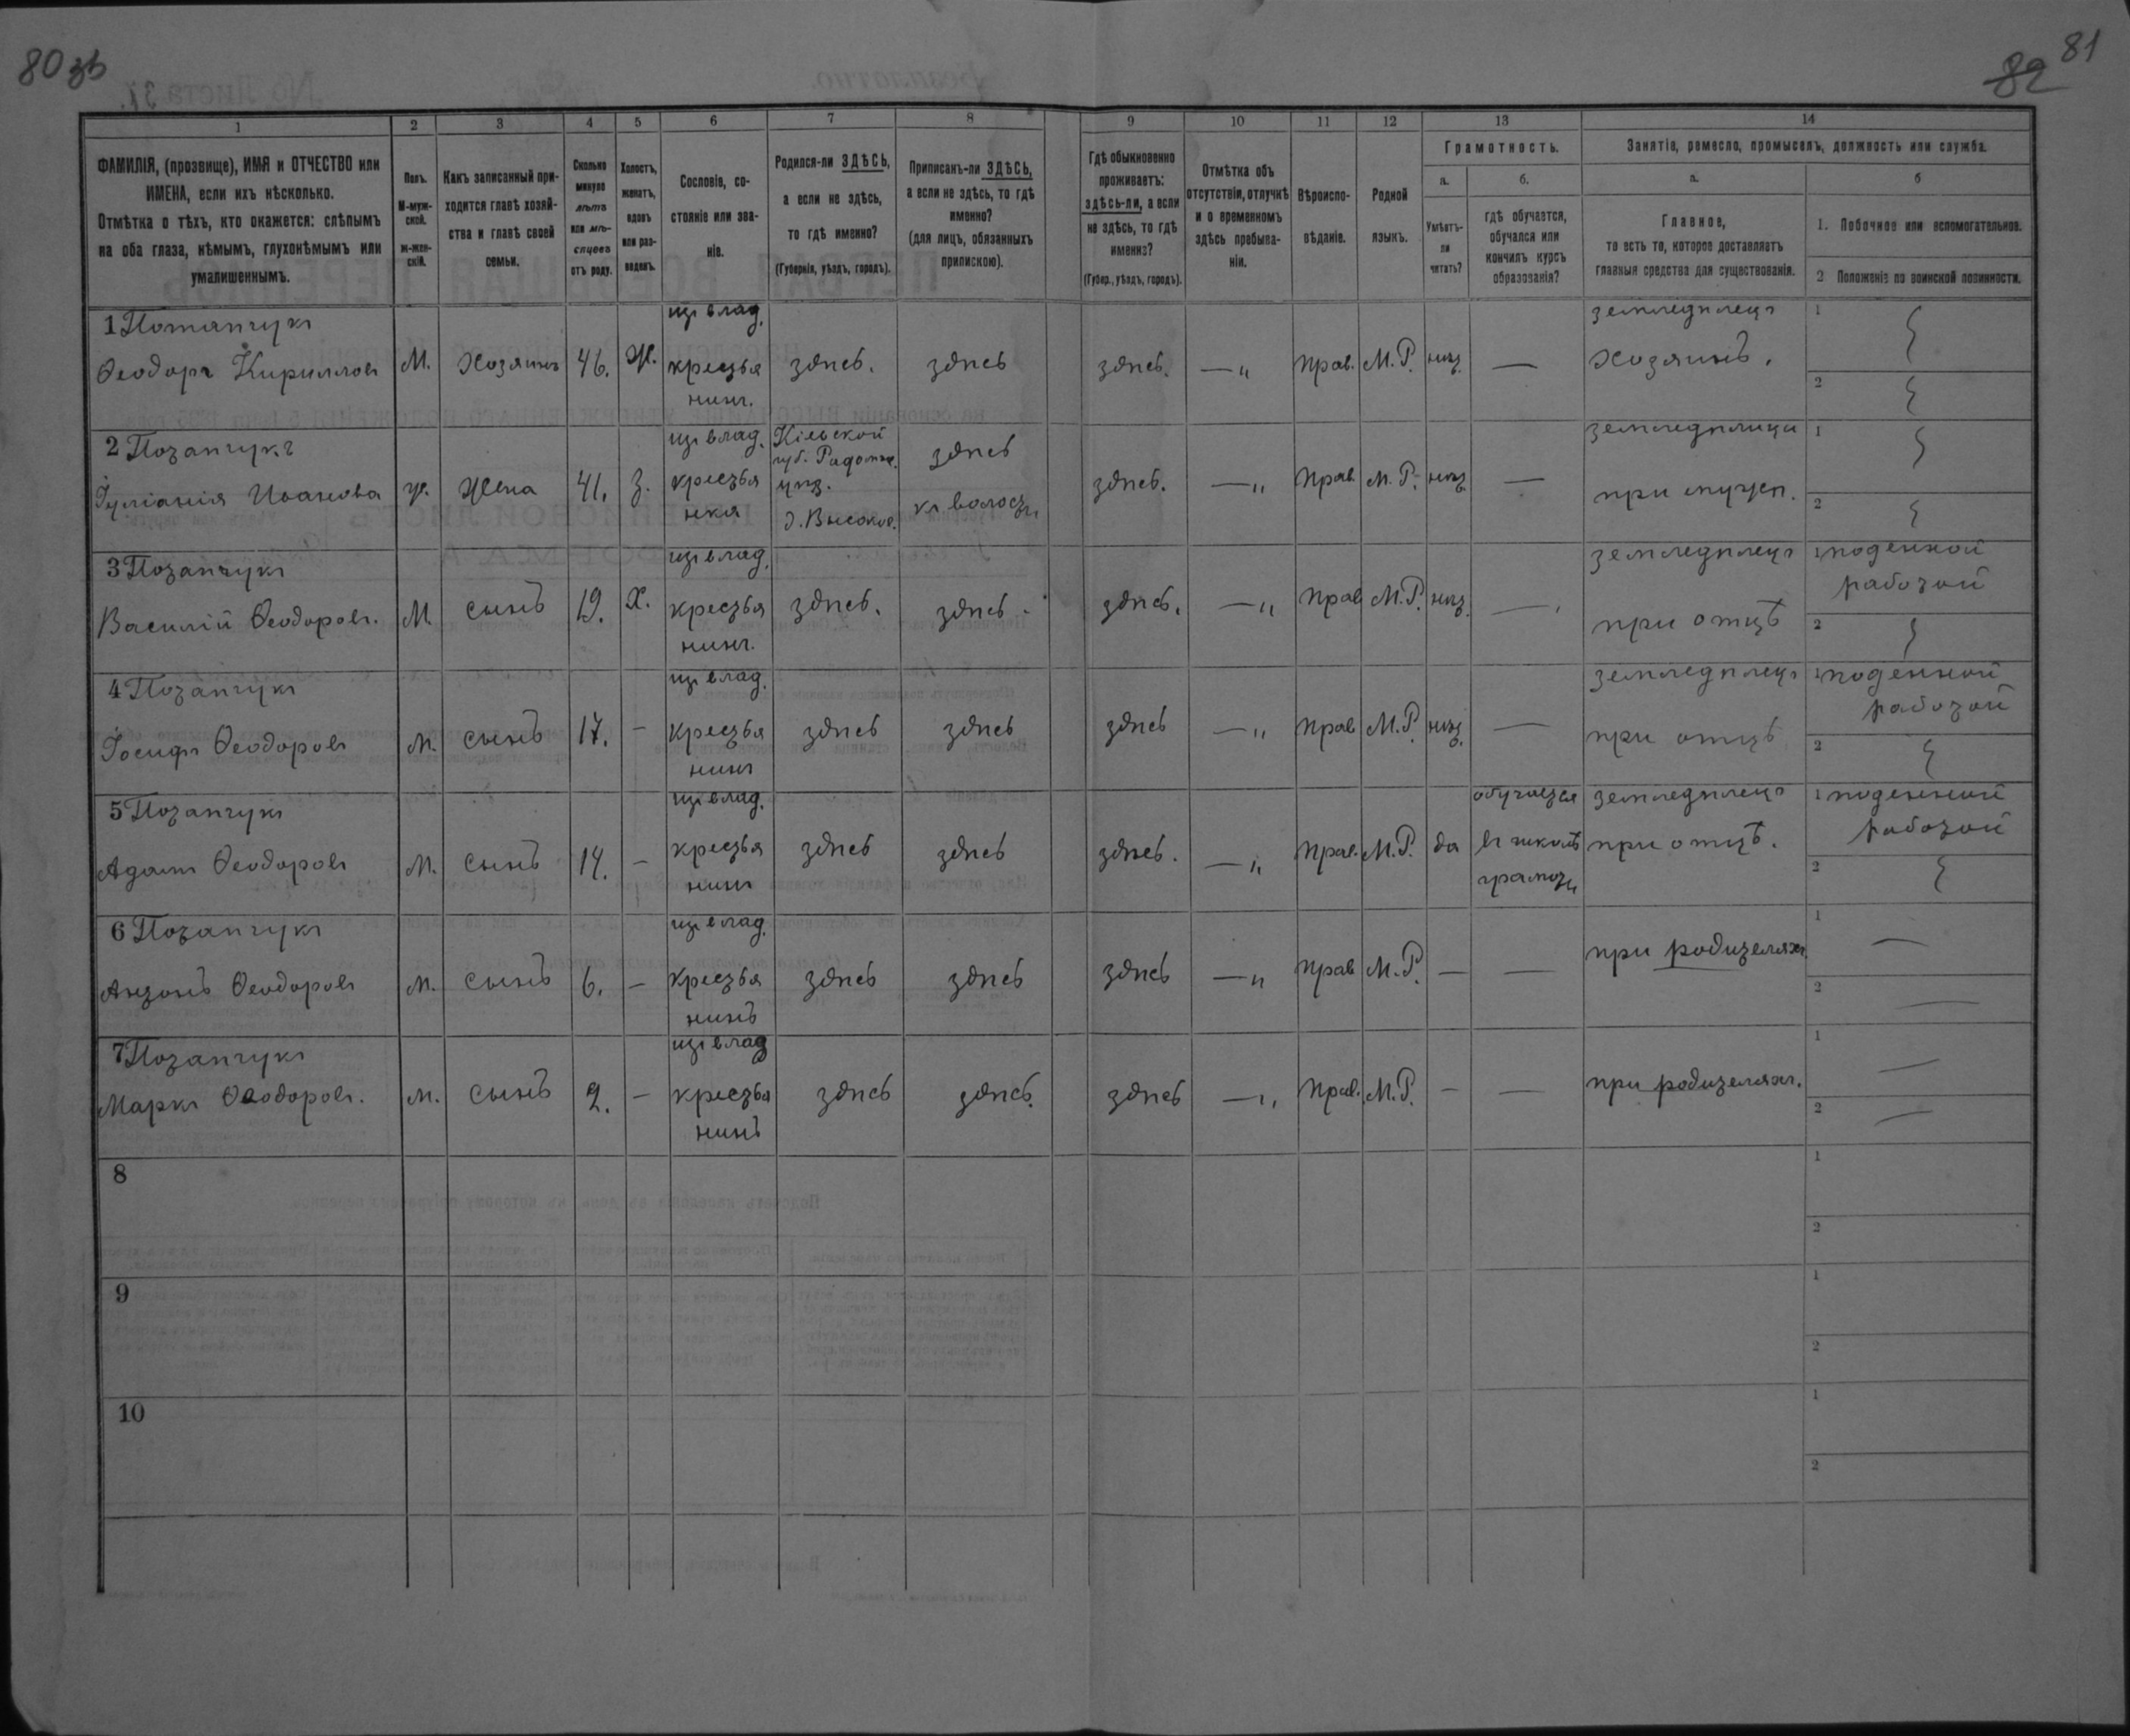 80 зв
82 81
1 2 3 4 5 6 7 8 9 10 11 12 13 14
ФАМИЛІЯ, (прозвище), ИМЯ и ОТЧЕСТВО или
ИМЕНА, если ихъ нѣсколько.
Отмѣтка о тѣхъ, кто окажется: слѣпымъ
на оба глаза, нѣмымъ, глухонѣмымъ или
умалишеннымъ.
Полъ.
М-муж-
ской.
ж-жен-
скій.
Какъ записанный при-
ходится главѣ хозяй-
ства и главѣ своей
семьи.
Сколько
минуло
лѣтъ
или мѣ-
сяцевъ
отъ роду.
Холостъ,
женатъ,
вдовъ
или раз-
веденъ.
Сословіе, со-
стояніе или зва-
ніе.
Родился-ли ЗДѢСЬ,
а если не здѣсь,
то гдѣ именно?
(Губернія, уѣздъ, городъ).
Приписанъ-ли ЗДѢСЬ,
а если не здѣсь, то гдѣ
именно?
(для лицъ, обязанныхъ
припискою).
Гдѣ обыкновенно
проживаетъ:
здѣсь-ли, а если
не здѣсь, то гдѣ
именно?
(Губер., уѣздъ, городъ).
Отмѣтка объ
отсутствіи, отлучкѣ
и о временномъ
здѣсь пребыва-
ніи.
Вѣроиспо-
вѣданіе.
Родной
языкъ.
Грамотность.
а.
Умѣетъ-
ли
читать?
б.
гдѣ обучается,
обучался или
кончилъ курсъ
образованія?
Занятіе, ремесло, промыселъ, должность или служба.
а.
Главное,
то есть то, которое доставляетъ
главныя средства для существованія.
б
1. Побочное или вспомогательное.
2 Положеніе по воинской повинности.
1 Потапчукъ
Ѳеодоръ Кириллов
М.
Хозяинъ
46.
Ж.
из влад.
крестья
нинъ.
здѣсь.
здѣсь
здѣсь.
—"
прав.
М. Р.
нѣт.
—
земледѣлецъ
хозяинъ.
1
2
2 Потапчукъ
Іуліанія Иванова
ж.
Жена
41.
з.
из влад.
крестья
нка
Кіевской
губ. Радомы.
уѣз.
д. Высокое.
здѣсь
къ волости
здѣсь.
—"
прав.
М. Р.
нѣт.
—
земледѣлица
при мужѣ.
1
2
3 Потапчукъ
Василій Ѳеодоровъ.
М.
сынъ
19.
Х.
из влад.
крестья
нинъ.
здѣсь.
здѣсь.
здѣсь.
—"
прав
М. Р.
нѣт.
—.
земледѣлецъ
при отцѣ
1 поденной
работой
2
4 Потапчукъ
Іосифъ Ѳеодоровъ
М.
сынъ
17.
—
из влад.
крестья
нинъ
здѣсь
здѣсь
здѣсь
—"
прав
М. Р.
нѣт.
—
земледѣлецъ
при отцѣ
1 поденной
работой
2
5 Потапчукъ
Адамъ Ѳеодоровъ
М.
сынъ
14.
—
из влад.
крестья
нинъ
здѣсь
здѣсь
здѣсь.
—"
прав.
М. Р.
да
обучается
въ школѣ
грамоты
земледѣлецъ
при отцѣ.
1 поденной
работой
2
6 Потапчукъ
Антонъ Ѳеодоровъ
М.
сынъ
6.
—
из влад.
крестья
нинъ
здѣсь
здѣсь
здѣсь
—"
прав
М. Р.
—
—
при родителяхъ.
1 —
2 —
7 Потапчукъ
Маркъ Ѳеодоровъ.
М.
сынъ
2.
—
из влад
крестья
нинъ
здѣсь
здѣсь.
здѣсь
—"
прав.
М. Р.
—
—
при родителяхъ.
1 —
2 —
8
1
2
9
1
2
10
1
2